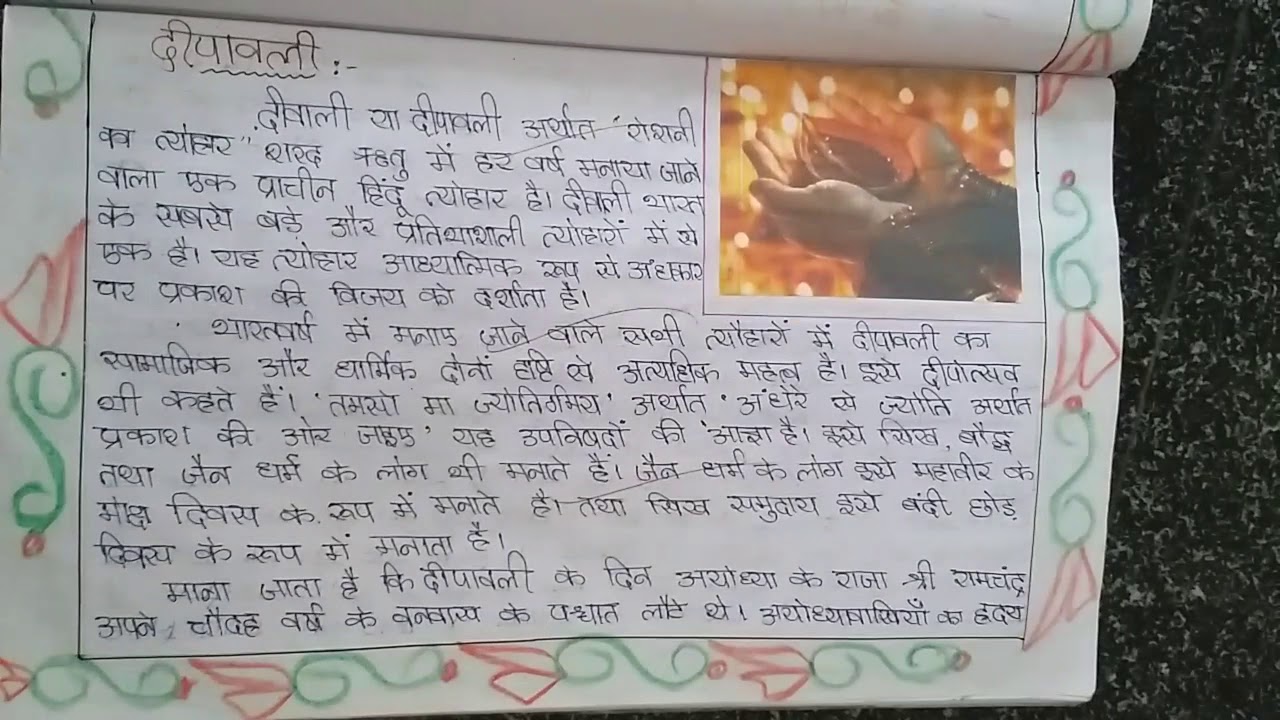 दीपावली :-
दीवाली या दीपावली अर्थात "रोशनी
का त्योहार" शरद ऋतु में हर वर्ष मनाया जाने
वाला एक प्राचीन हिंदू त्योहार है। दीवाली भारत
के सबसे बड़े और प्रतिभाशाली त्योहारों में से
एक है। यह त्योहार आध्यात्मिक रूप से अंधकार
पर प्रकाश की विजय को दर्शाता है।
भारतवर्ष में मनाए जाने वाले सभी त्यौहारों में दीपावली का
सामाजिक और धार्मिक दोनों दृष्टि से अत्यधिक महत्व है। इसे दीपोत्सव
भी कहते हैं। 'तमसो मा ज्योतिर्गमय' अर्थात 'अंधेरे से ज्योति अर्थात
प्रकाश की ओर जाइए' यह उपनिषदों की आज्ञा है। इसे सिख, बौद्ध
तथा जैन धर्म के लोग भी मनाते हैं। जैन धर्म के लोग इसे महावीर के
मोक्ष दिवस के रूप में मनाते है। तथा सिख समुदाय इसे बंदी छोड़
दिवस के रूप में मनाता है।
माना जाता है कि दीपावली के दिन अयोध्या के राजा श्री रामचंद्र
अपने चौदह वर्ष के वनवास के पश्चात लौटे थे। अयोध्यावासियों का ह्रदय